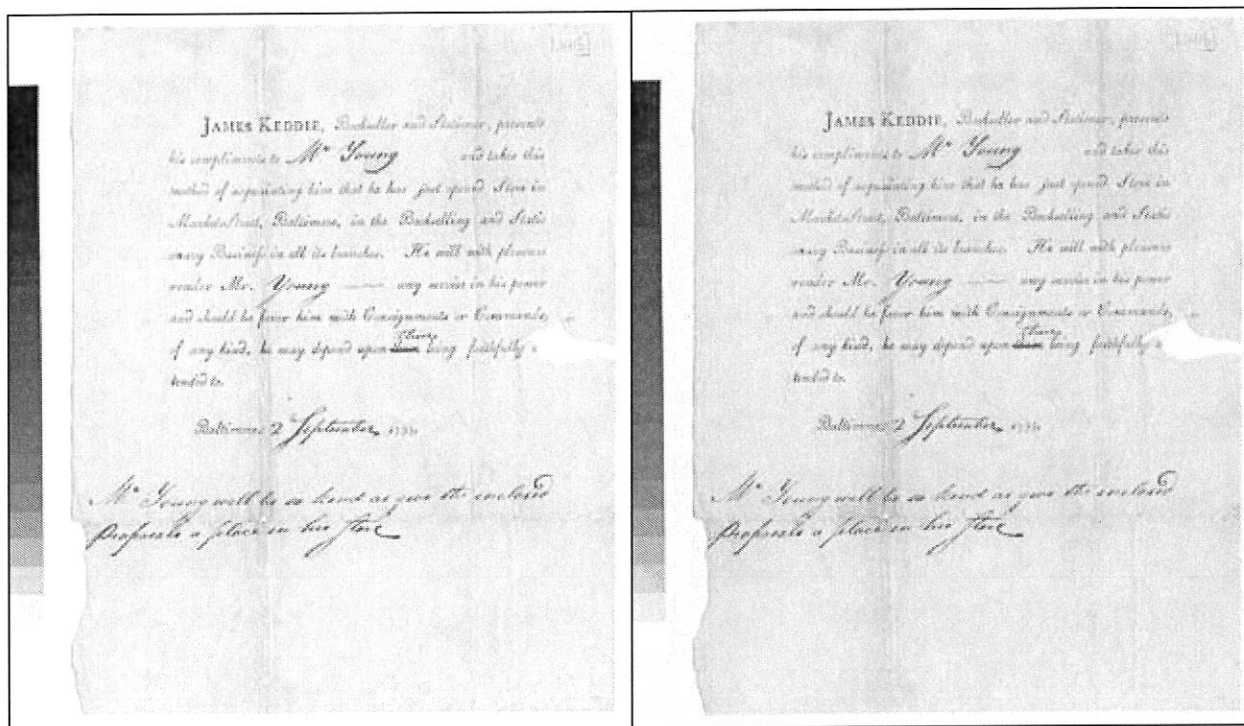 JAMES KEDDIE, Bookseller and Stationer, presents
his compliments to Mr. Young and takes this
method of acquainting him that he has just opened Store in
Market-Street, Baltimore, in the Bookselling and Statio
onary Business in all its branches. He will with pleasure
render Mr. Young —— any service in his power
and should he favor him with Consignments or Commands,
of any kind, he may depend upon their being faithfully a
tended to.
Baltimore 2 September
Mr. Young will be so kind as give the enclosed
Proposals a place in his store
JAMES KEDDIE, Bookseller and Stationer, presents
his compliments to Mr. Young and takes this
method of acquainting him that he has just opened Store in
Market-Street, Baltimore, in the Bookselling and Statio
onary Business in all its branches. He will with pleasure
render Mr. Young —— any service in his power
and should he favor him with Consignments or Commands,
of any kind, he may depend upon their being faithfully a
tended to.
Baltimore 2 September
Mr. Young will be so kind as give the enclosed
Proposals a place in his store